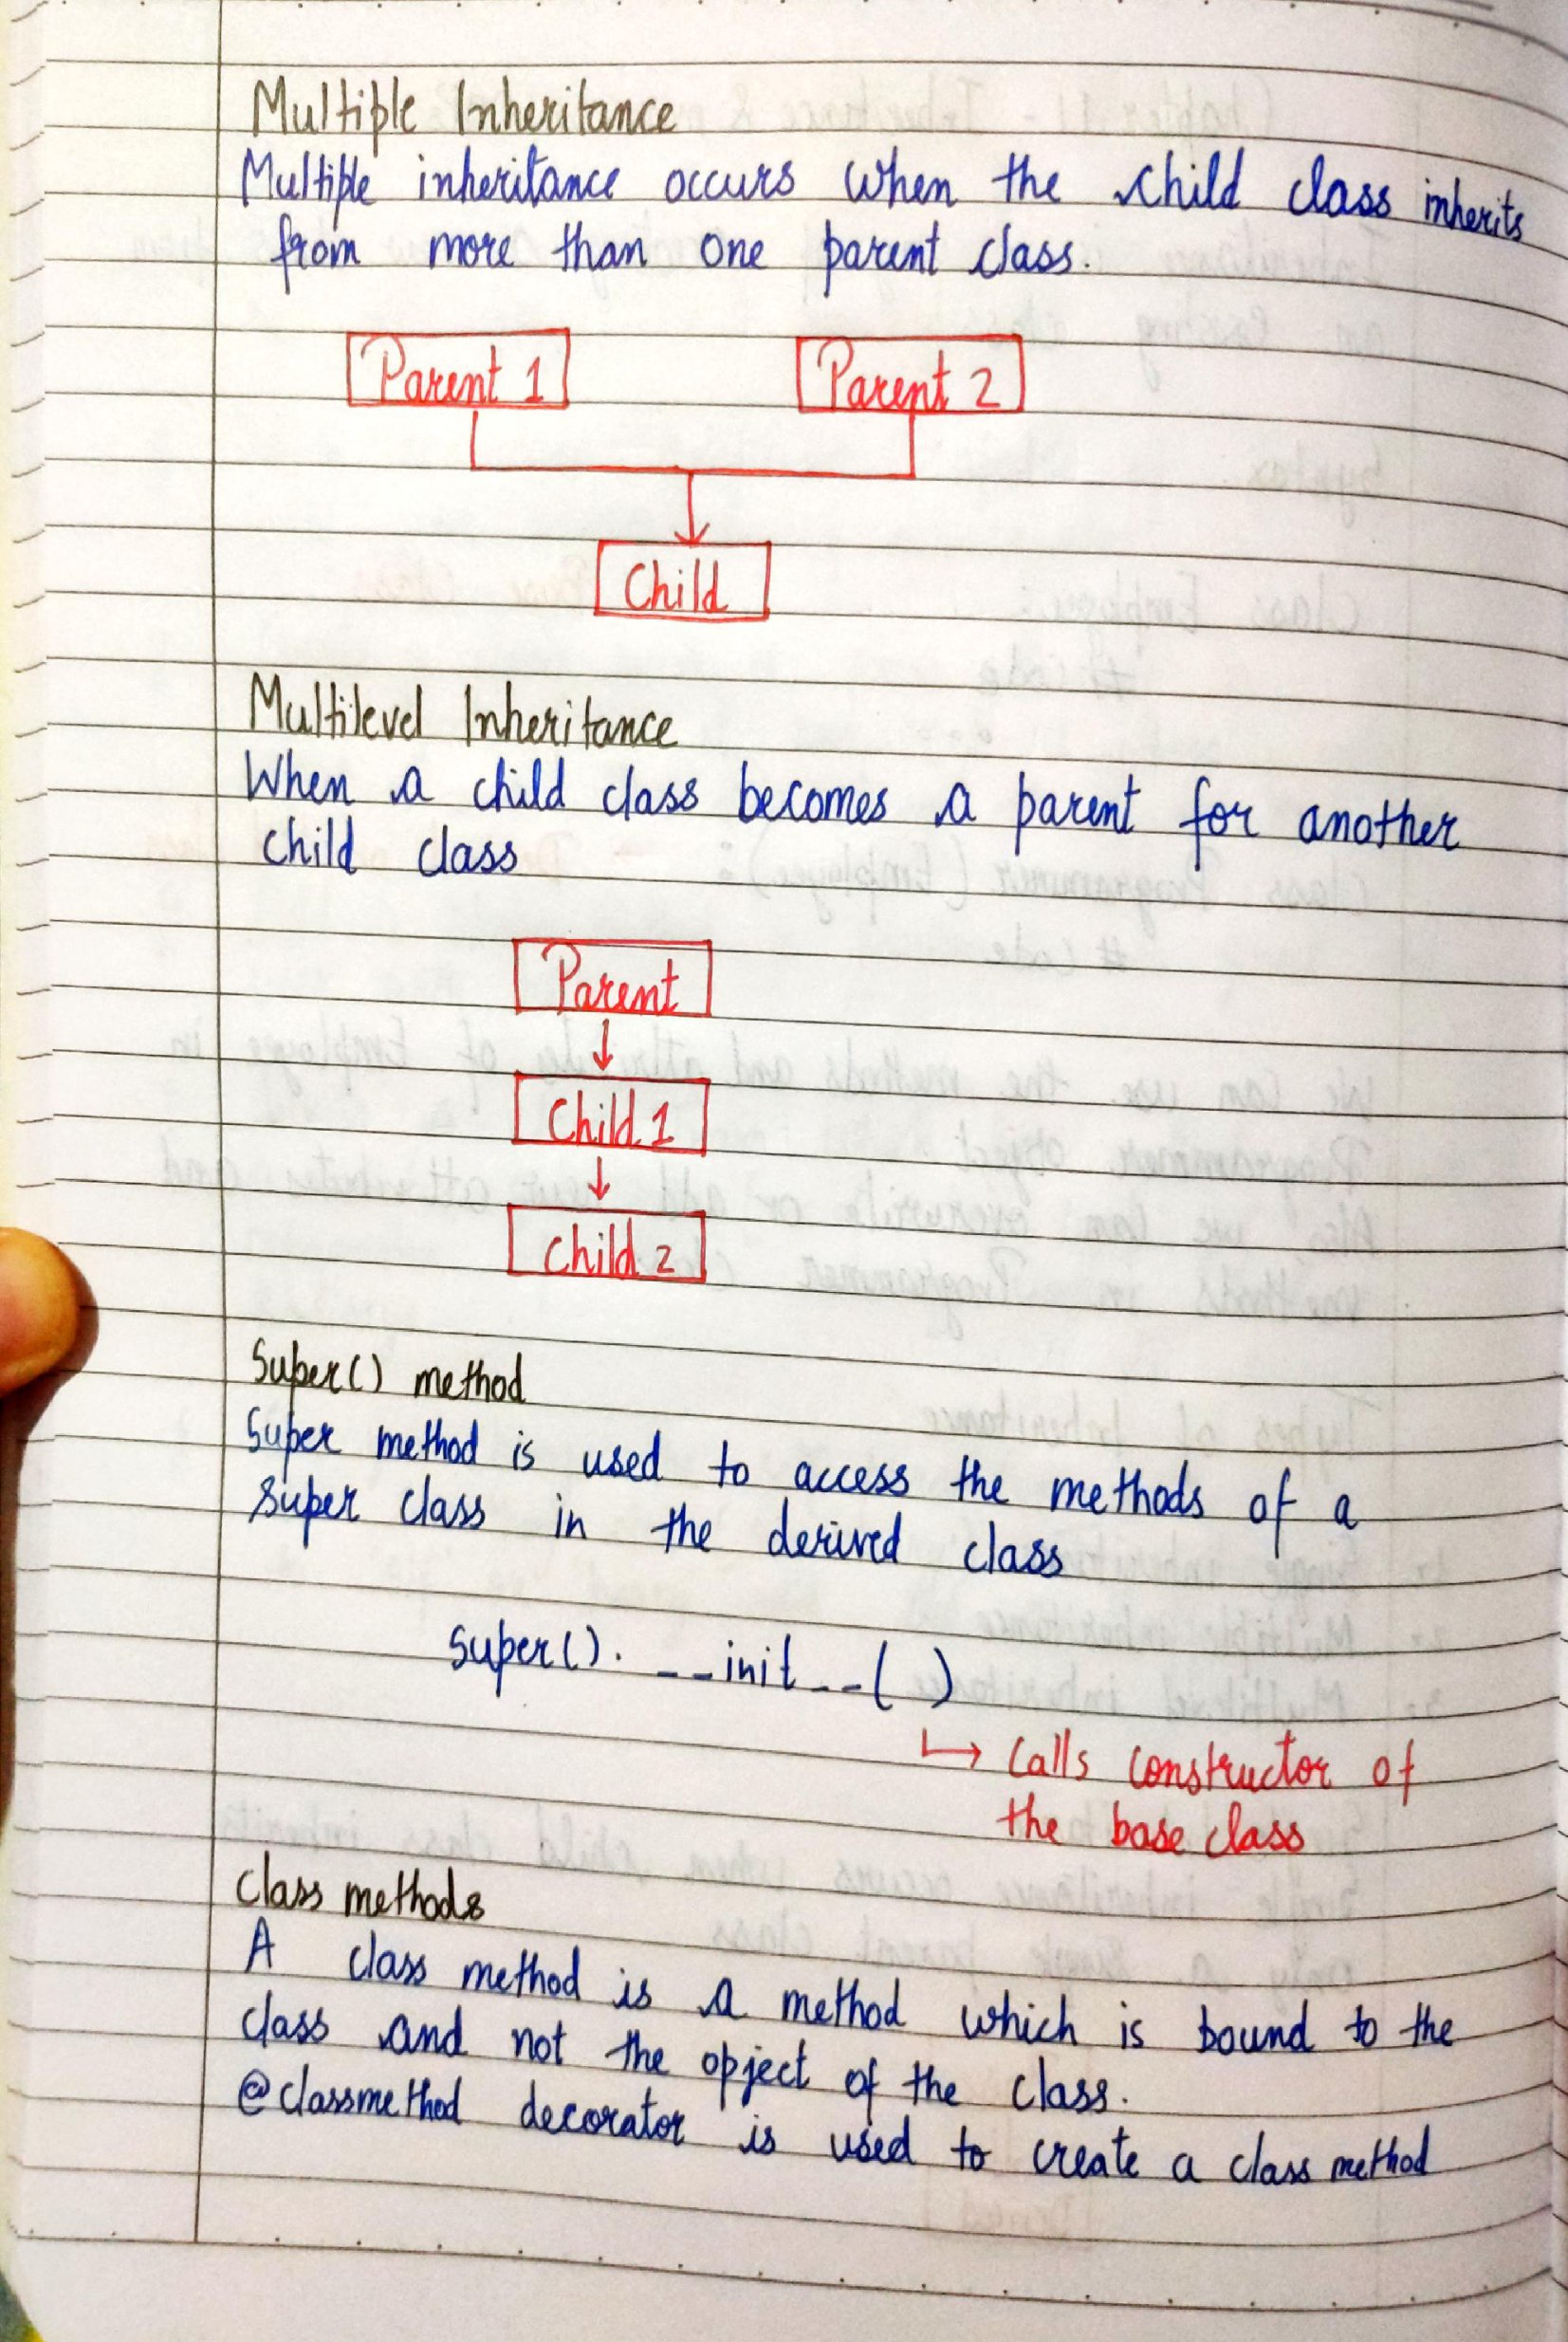 Multiple Inheritance
Multiple inheritance occurs when the child class inherits
from more than one parent class.
Parent 1 Parent 2
Child
Multilevel Inheritance
When a child class becomes a parent for another
child class
Parent
Child 1
Child 2
Super() method
Super method is used to access the methods of a
super class in the derived class
super(). __init__( )
↳ Calls constructor of
the base class
Class methods
A class method is a method which is bound to the
class and not the opject of the class.
@classmethod decorator is used to create a class method